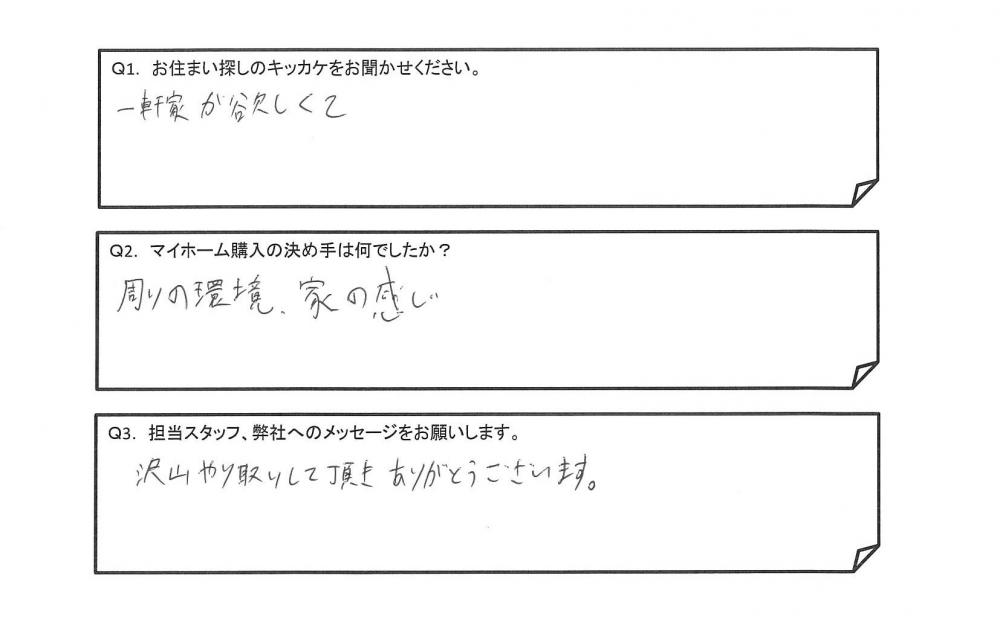 Q1. お住まい探しのキッカケをお聞かせください。
一軒家が欲しくて
Q2. マイホーム購入の決め手は何でしたか？
周りの環境、家の感じ
Q3. 担当スタッフ、弊社へのメッセージをお願いします。
沢山やり取りして頂きありがとうございます。